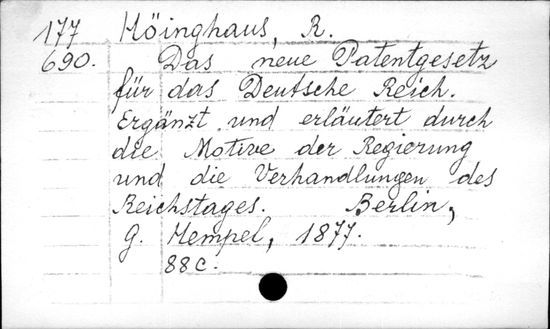 177 Höinghaus, R.
690. Das neue Patentgesetz
für das Deutsche Reich.
Ergänzt und erläutert durch
die Motive der Regierung
und die Verhandlungen des
Reichstages. Berlin,
G. Hempel, 1877.
88 c.